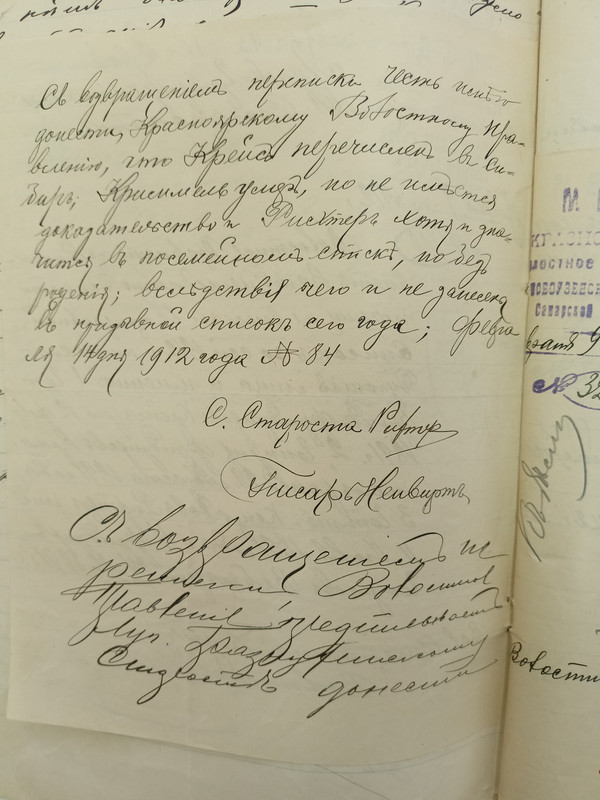 Съ возвращеніемъ переписки честь имѣю
донести, Красноярскому Волостному Пра-
вленію, что Крейсъ перечисленъ въ Си-
бирь, уѣздъ, но не имѣется
доказательство и Рихтеръ хотя и зна-
чится въ посемейномъ спискѣ, но безъ
рожденія; вслѣдствія чего и не занесенъ
въ призывной списокъ сего года; Февра
ля 14 дня 1912 года № 84
С. Староста
Писарь
Съ возвращеніемъ пе
реписки, Волостное
Правленіе предписываетъ
донести
М
КРАСНО
ЛОСТНОЕ
НОВОУЗЕНСК
Самарской
враля 9
№ 32
Волостн